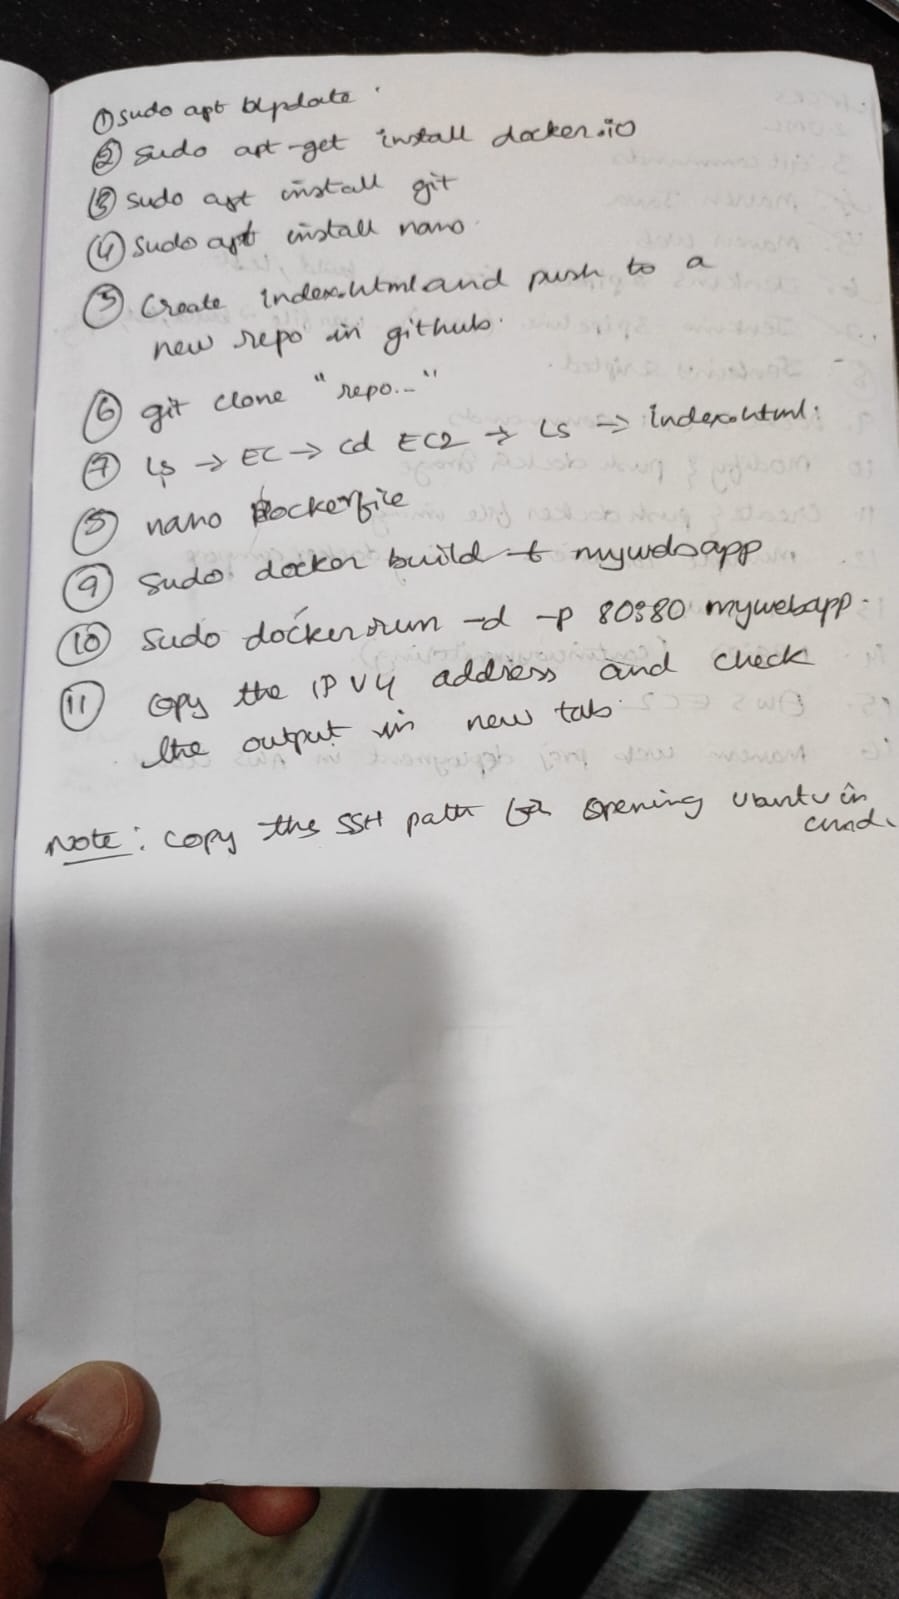 ① sudo apt update.
② sudo apt-get install docker.io
③ sudo apt install git
④ sudo apt install nano.
⑤ Create index.html and push to a
new repo in github.
⑥ git clone "repo..."
⑦ Ls → EC → cd EC2 → Ls → index.html.
⑧ nano Dockerfile
⑨ sudo docker build -t mywebapp
⑩ sudo docker run -d -p 80:80 mywebapp.
⑪ Copy the IPV4 address and check
the output in new tab.
Note: copy the SSH path for opening ubuntu in
cmd.